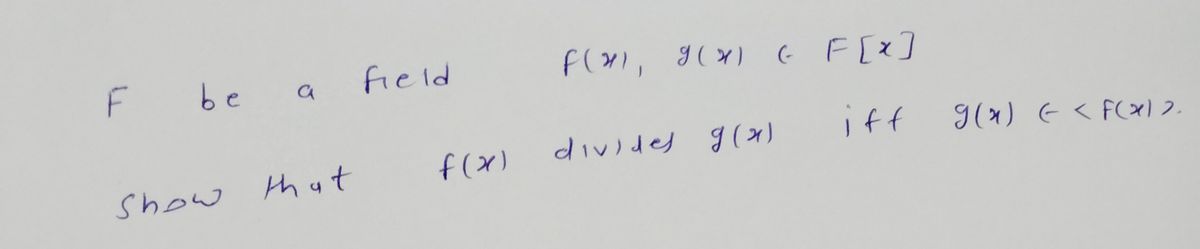 F be a field f(x), g(x) ∈ F[x]
show that f(x) divides g(x) iff g(x) ∈ <f(x)>.